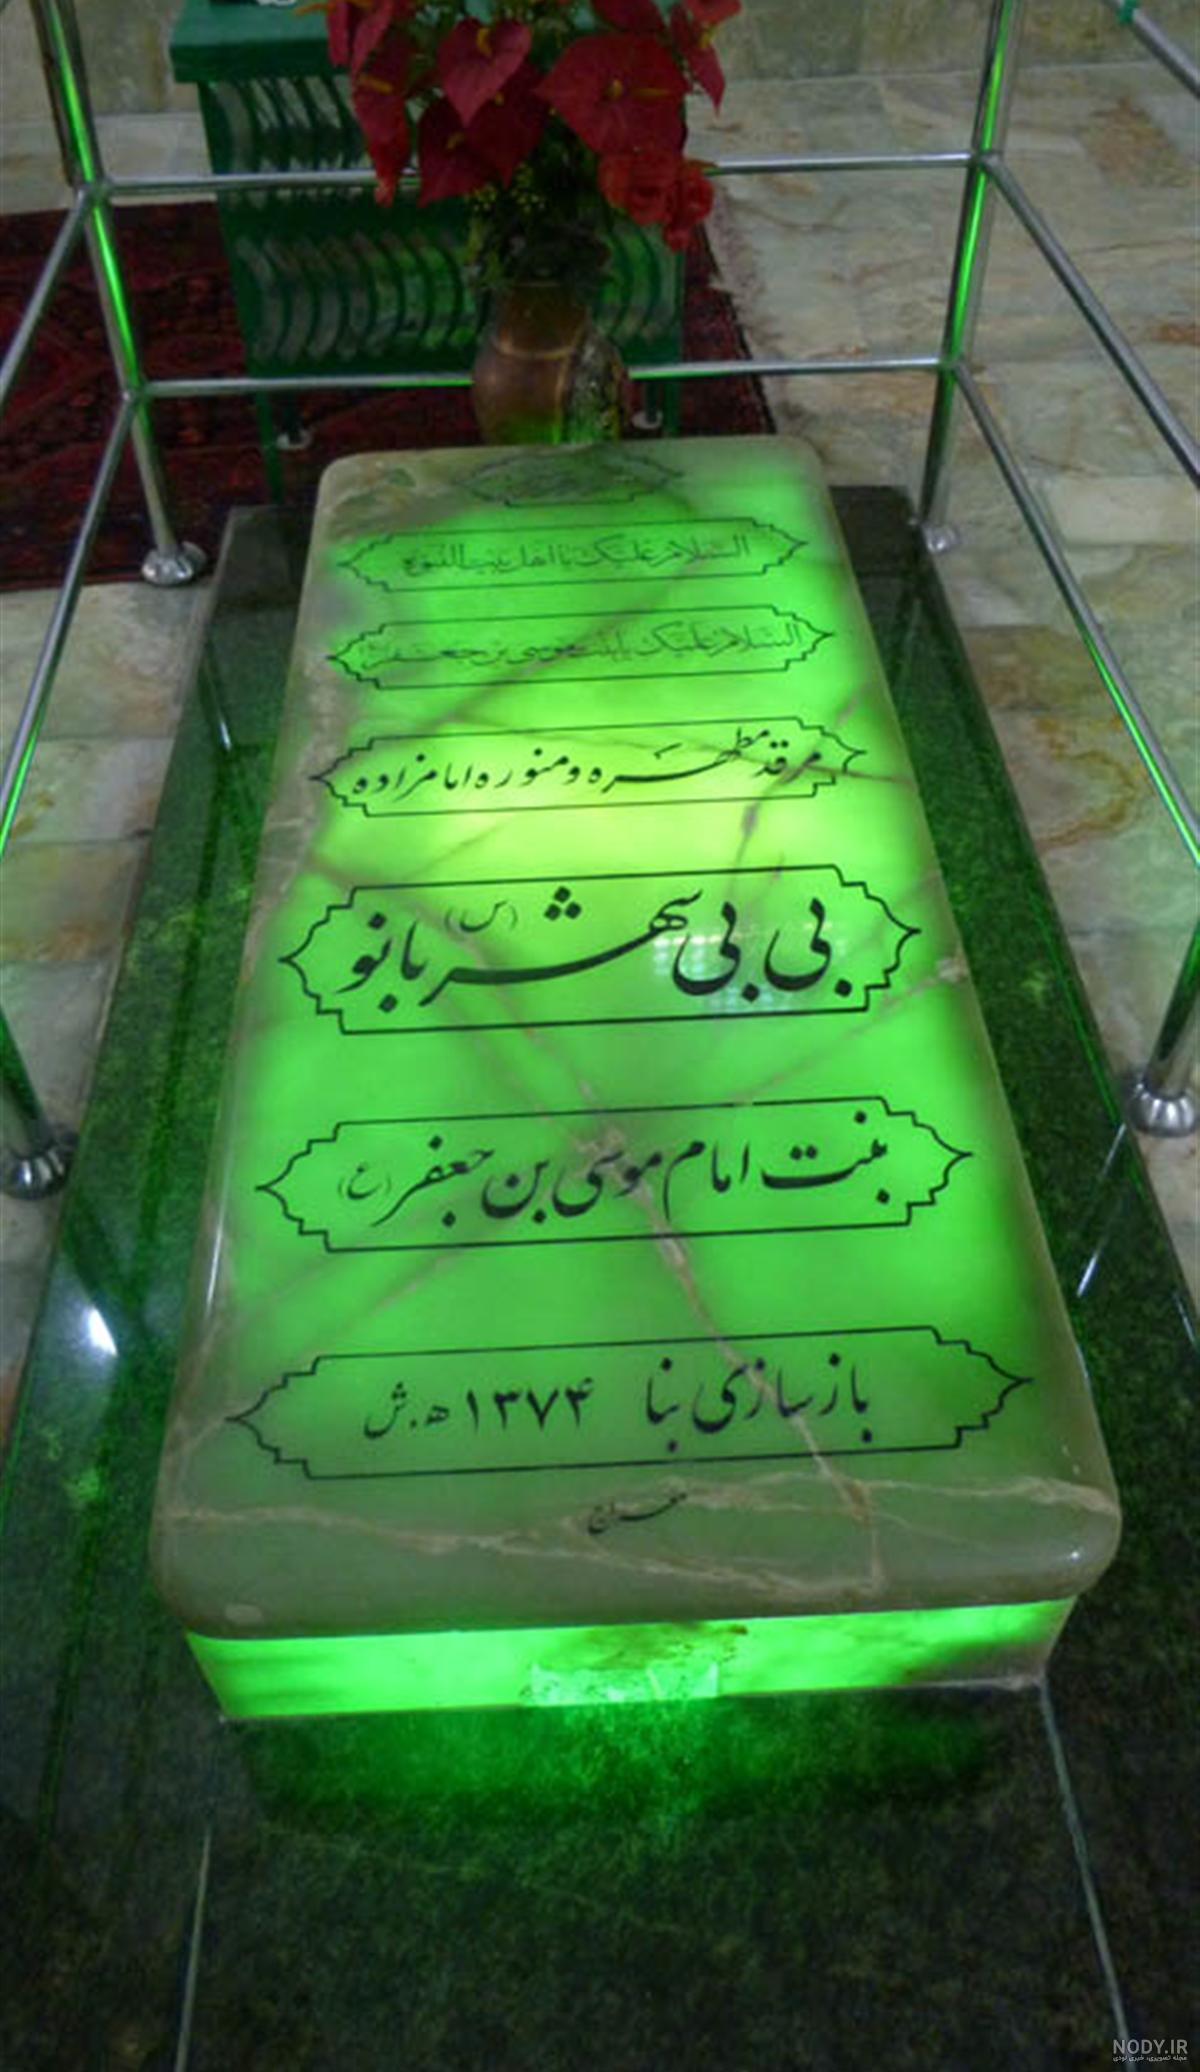 السلام علیک یا اهل بیت النبوة
السلام علیک یا بنت موسی بن جعفر
مرقد مطهره و منوره امامزاده
بی بی شهربانو (س)
بنت امام موسی بن جعفر (ع)
بازسازی بنا ۱۳۷۴ ه.ش
معراج
NODY.IR
مجله تصویری، خبری نودی